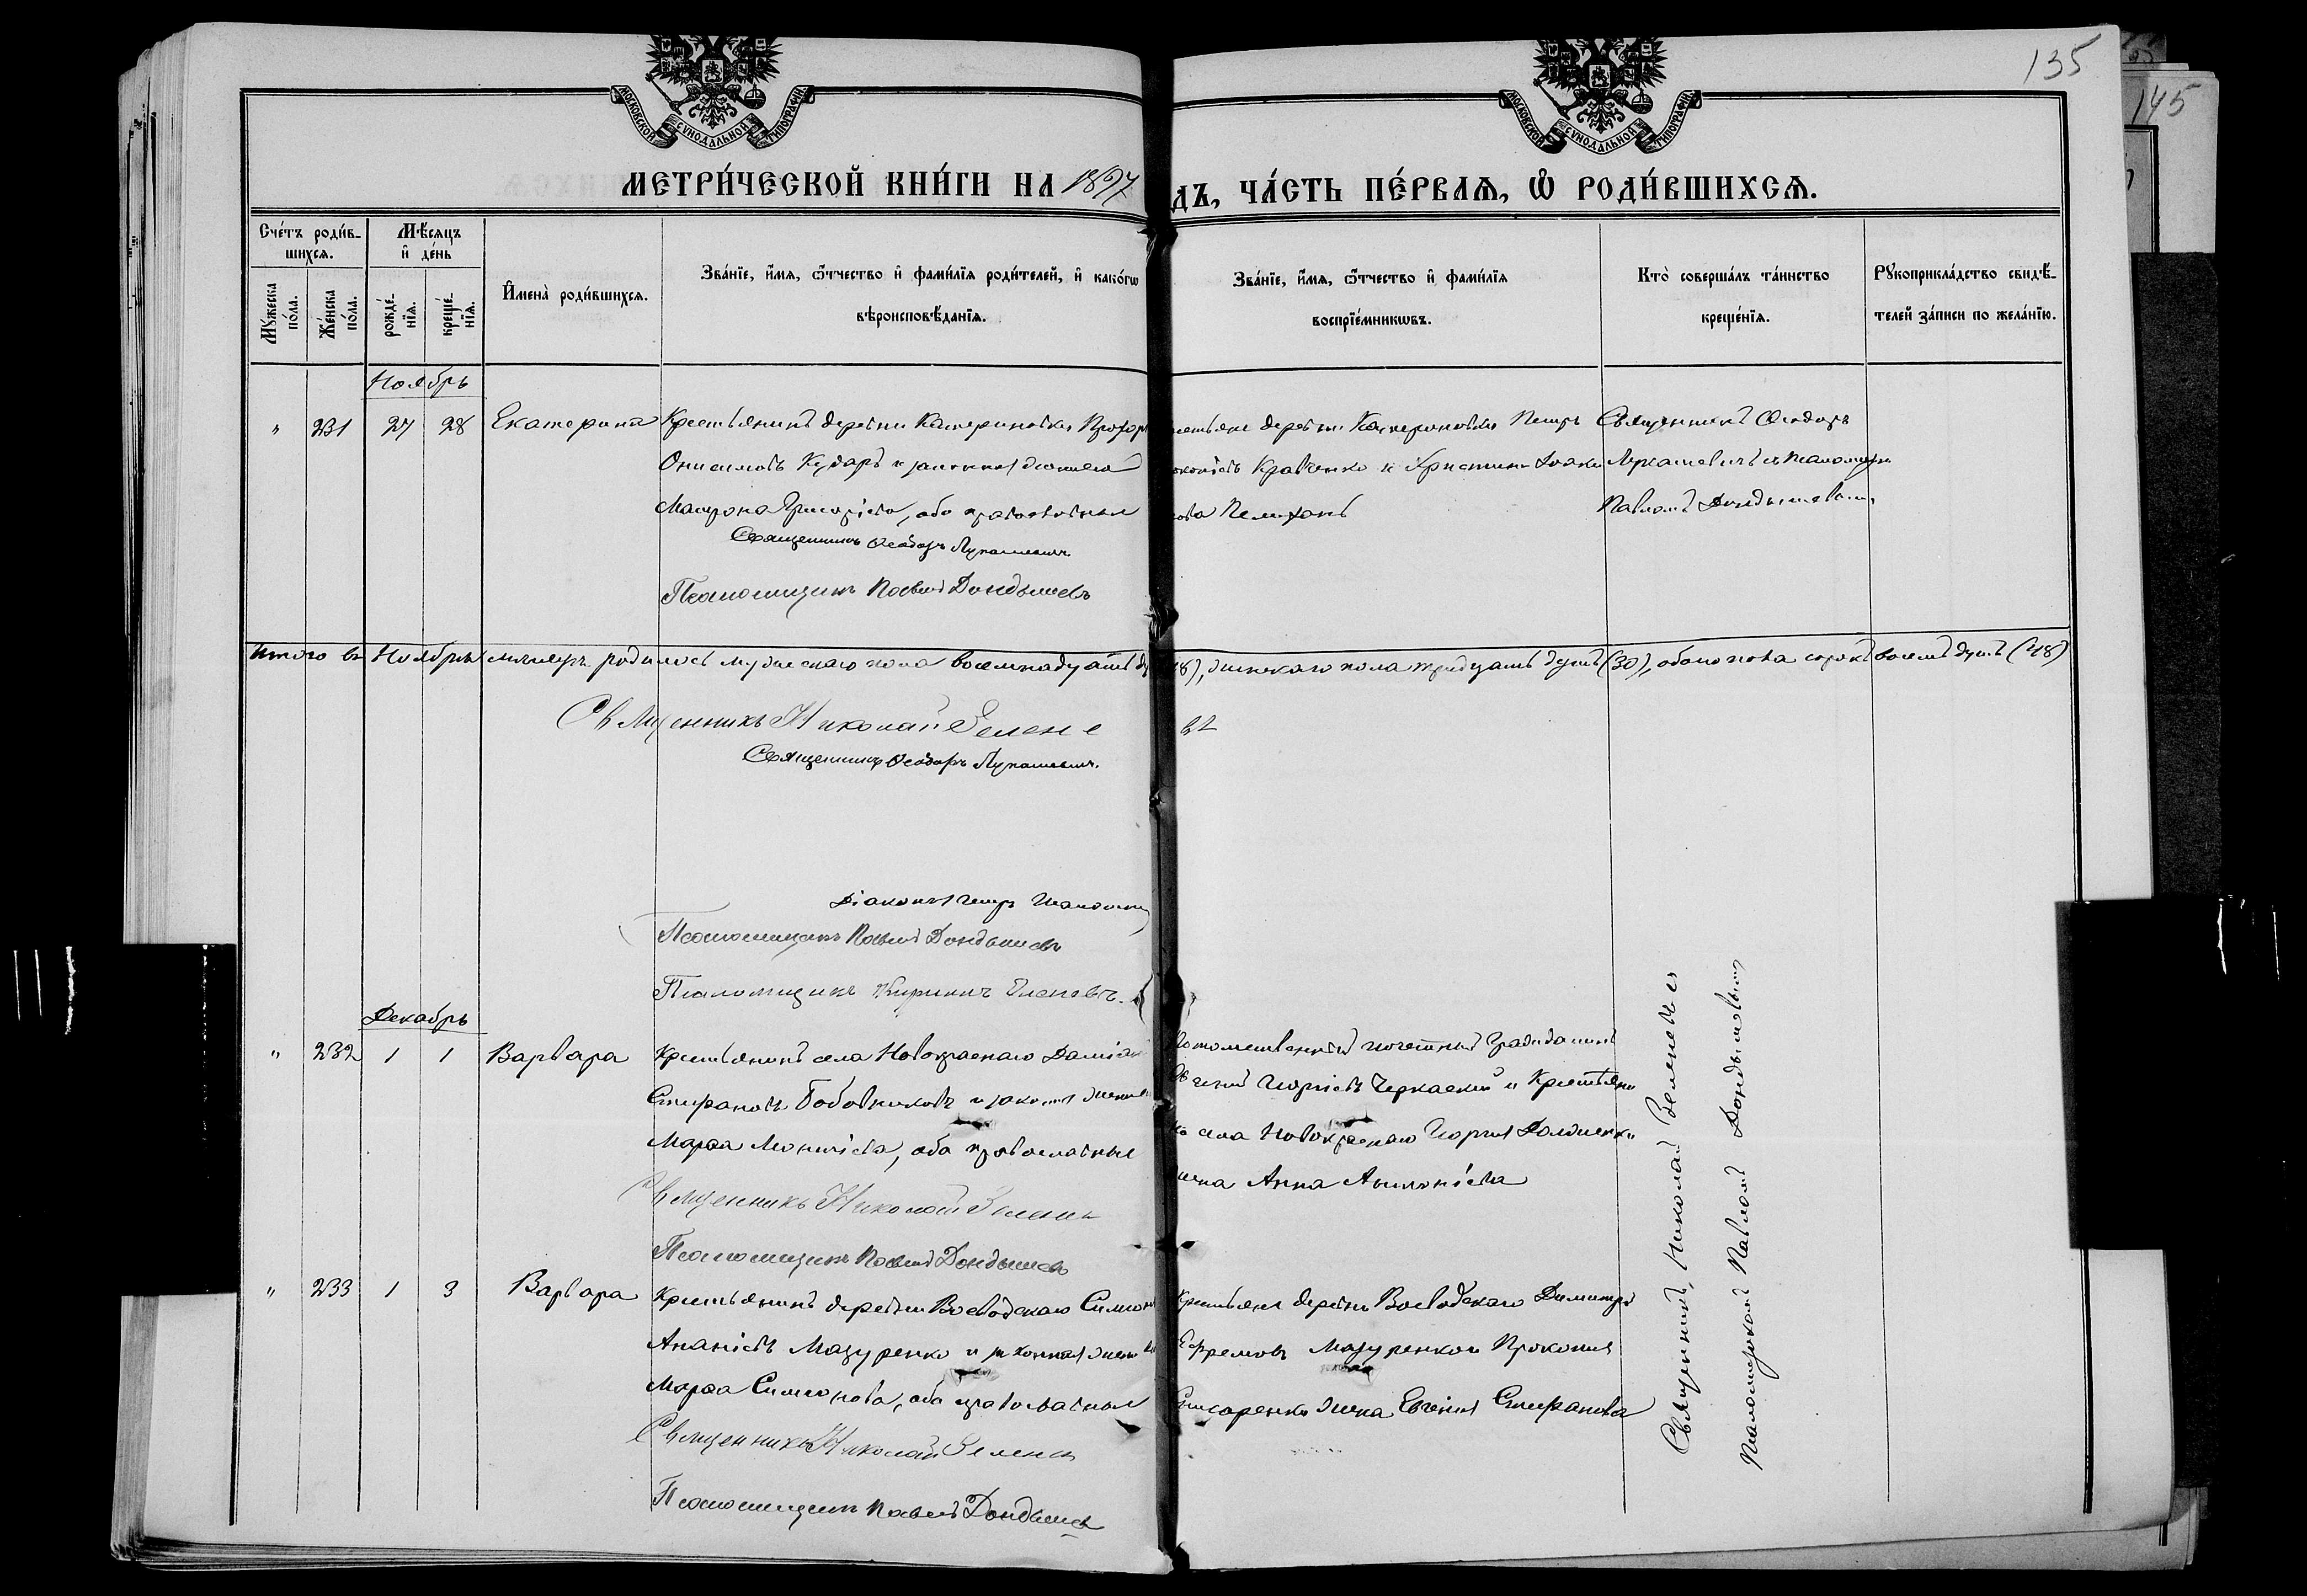 135
145
МОСКОВСКОЙ СУНОДАЛЬНОЙ ТИПОГРАФІИ
МОСКОВСКОЙ СУНОДАЛЬНОЙ ТИПОГРАФІИ
МЕТРИ́ЧЕСКОЙ КНИ́ГИ НА 1897
ДЪ, ЧА́СТЬ ПЕ́РВАѦ, Ѡ РОДИ́ВШИХСѦ.
Сче́тъ роди́в-
шихсѧ.
Мꙋ́жеска по́ла.
Же́нска по́ла.
Мѣ́сѧцъ
и де́нь
рожде́-
нїѧ.
креще́-
нїѧ.
Имена̀ роди́вшихсѧ.
Зва́нїе, и́мѧ, ѻ́тчество и фами́лїѧ роди́телей, и како́гѡ
вѣроисповѣ́данїѧ.
Зва́нїе, и́мѧ, ѻ́тчество и фами́лїѧ
воспрїе́мникѡвъ.
Кто̀ соверша́лъ та́инство
креще́нїѧ.
Рꙋкоприкла́дство свидѣ́-
телей за́писи по жела́нїю.
Ноябрь
" 231 27 28 Екатерина Крестьянинъ деревни Катериновки Прохор
Онисимовъ Кударь и законная жена его
Матрона Григоріева, оба православные
Священникъ Ѳеодоръ Лукашевичъ
Псаломщикъ Павелъ Дондышевъ
деревни Катериновки Петръ
Кравченко и Христина Іоаки
мова Пелихань
Священникъ Ѳеодоръ
Лукашевичъ съ псаломщи
Павломъ Дондышевымъ
Итого въ Ноябрѣ мѣсяцѣ родилось мужескаго пола восемнадцать ду
18), женскаго пола тридцать душъ (30), обоего пола сорокъ восемь душъ (48)
Священникъ Николай Зелене
въ
Священникъ Ѳеодоръ Лукашевичъ.
Діаконъ Петръ
Псаломщикъ Павелъ Дондышевъ
Псаломщикъ
Декабрь
" 232 1 1 Варвара Крестьянинъ села Новокраснаго Даміан
Стефановъ Бобовниковъ и законная жена
Марѳа Леонтіева, оба православные
Священникъ Николай Зелене
Псаломщикъ Павелъ Дондышевъ
Потомственный почетный Гражданинъ
Георгіевъ Черкаскій и Крестьяни
на села Новокраснаго Георгія Долженк
жена Анна Антоніева
" 233 1 3 Варвара Крестьянинъ деревни Воеводскаго Симеон
Ананіевъ Мазуренко и законная жена
Марѳа Симеонова, оба православные
Священникъ Николай Зелене
Псаломщикъ Павелъ Дондышевъ
Крестьяне деревни Воеводскаго Димитрі
Ефремовъ Мазуренко и Прокопія
жена Евгенія Стефанова
Священникъ Николай Зеленевъ съ
псаломщикомъ Павломъ Дондышевымъ